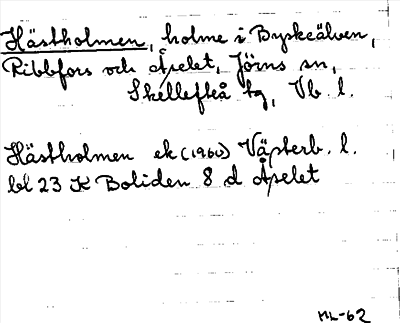 Hästholmen, holme i Byskeälven,
Ribbfors och Åselet, Jörns sn,
Skellefteå tg, Vb. l.
Hästholmen ek (1960) Västerb. l.
bl 23 K Boliden 8 d Åselet
ML-62